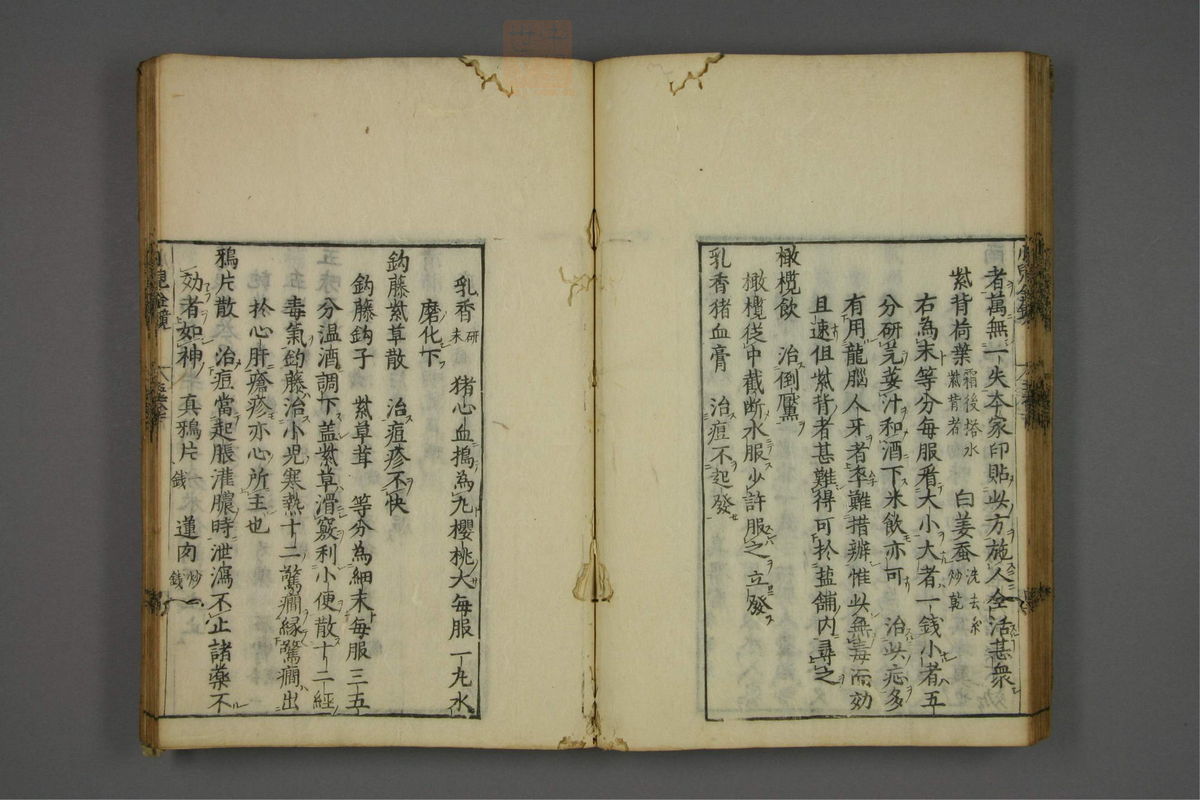 者萬無一失本家印貼此方施人全活甚衆
紫背荷葉 霜後搭水紫背者 白姜蚕 洗去糸炒乾
右為末等分每服看大小大者一錢小者五
分研芫荽汁和酒下米飲亦可 治此症多
有用龍腦人牙者率難措辨惟此無毒而効
且速但紫背者甚難得可於盐舖内尋之
橄欖飲 治倒黶
橄欖從中截断水服少許服之立發
乳香猪血膏 治痘不起發
乳香 研末 猪心血搗為丸櫻桃大每服一丸水
磨化下
鈎藤紫草散 治痘疹不快
鈎藤鈎子 紫草茸 等分為細末每服三五
分温酒調下盖紫草滑竅利小便散十二經
毒氣鈎藤治小児寒熱十二驚癇縁驚癇出
於心肝瘡疹亦心所主也
鴉片散 治痘當起脹灌膿時泄瀉不止諸藥不
効者如神 真鴉片 錢 蓮肉 炒 錢